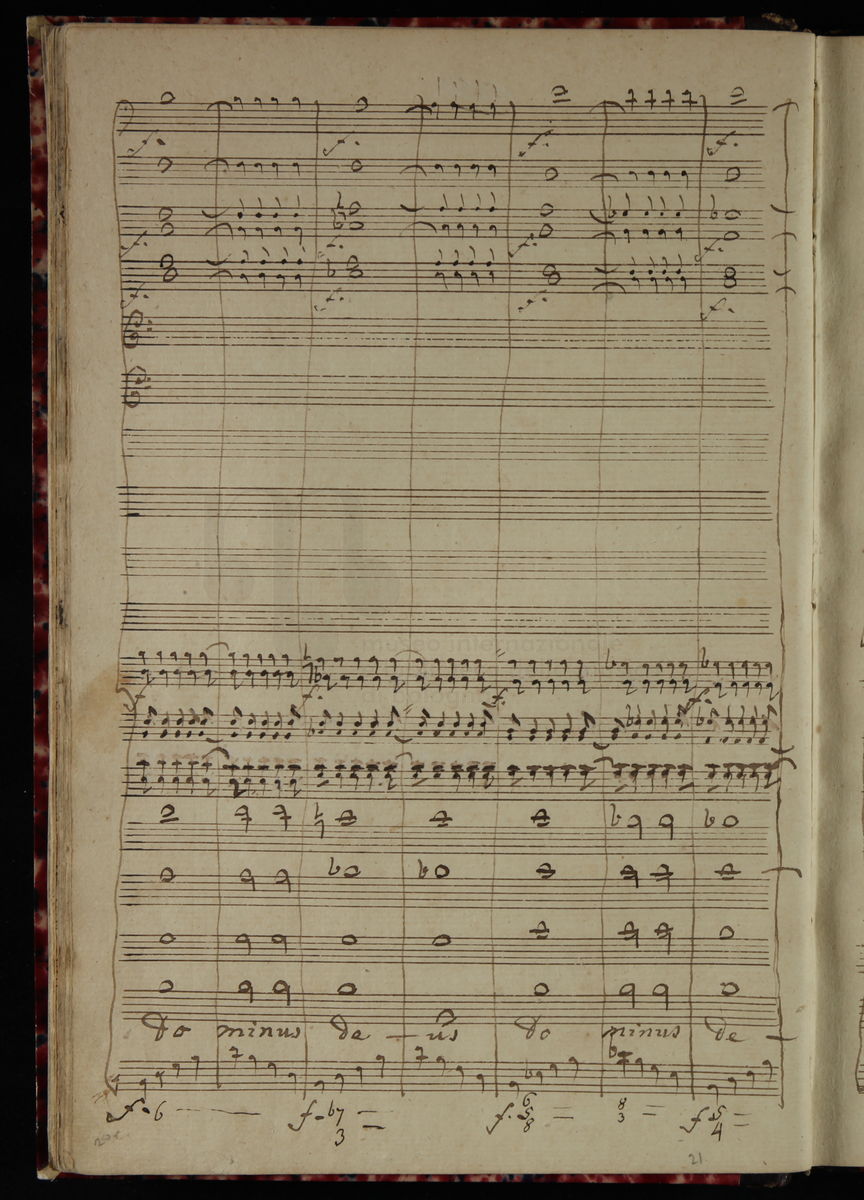 f. f. f. f.
f. f. f. f.
f. f. f. f.
museo internazionale
f. f. f.
Do minus de - us Do minus de -
f. 6 f. b7 3 f. 6 5 8 8 3 f 5 4
21